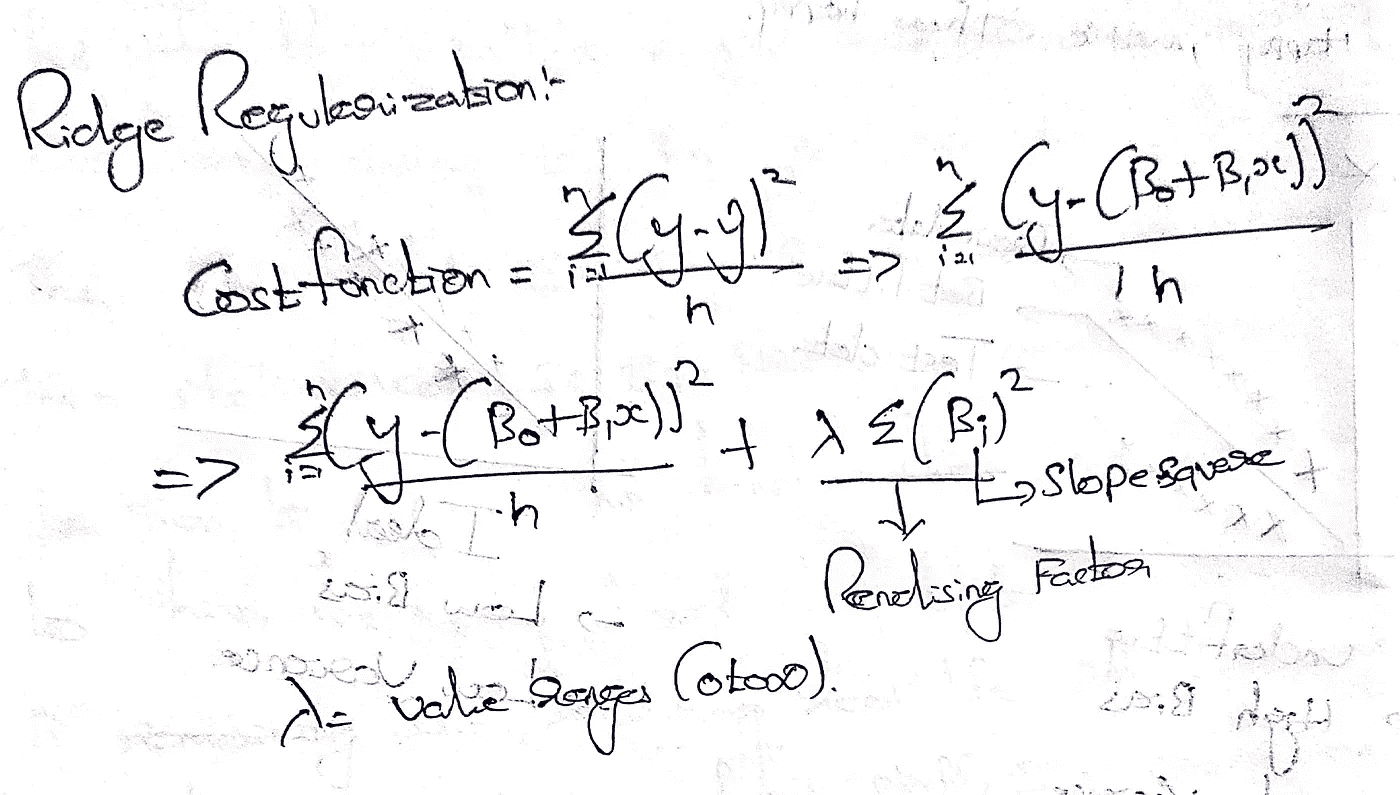 Ridge Regularization:-
Cost function = \frac{\sum_{i=1}^{n}(y-y)^2}{n} => \frac{\sum_{i=1}^{n}(y-(B_0+B_1x))^2}{n}
=> \frac{\sum_{i=1}^{n}(y-(B_0+B_1x))^2}{n} + λ Σ(B_i)^2
↳ Slope square
↓
Penalising Factor
λ = value ranges (0 to ∞).